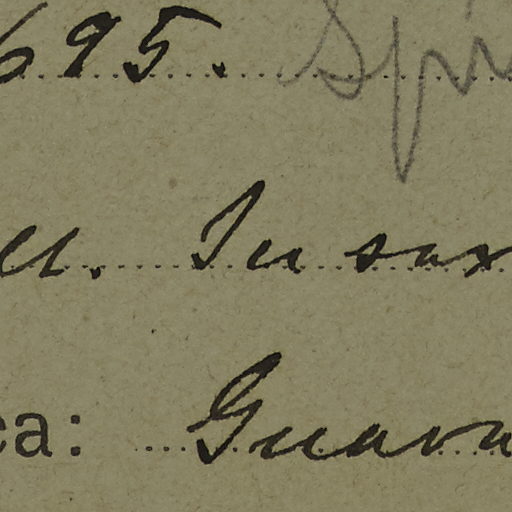 695. Spi
ll. In sax
ca: Guara